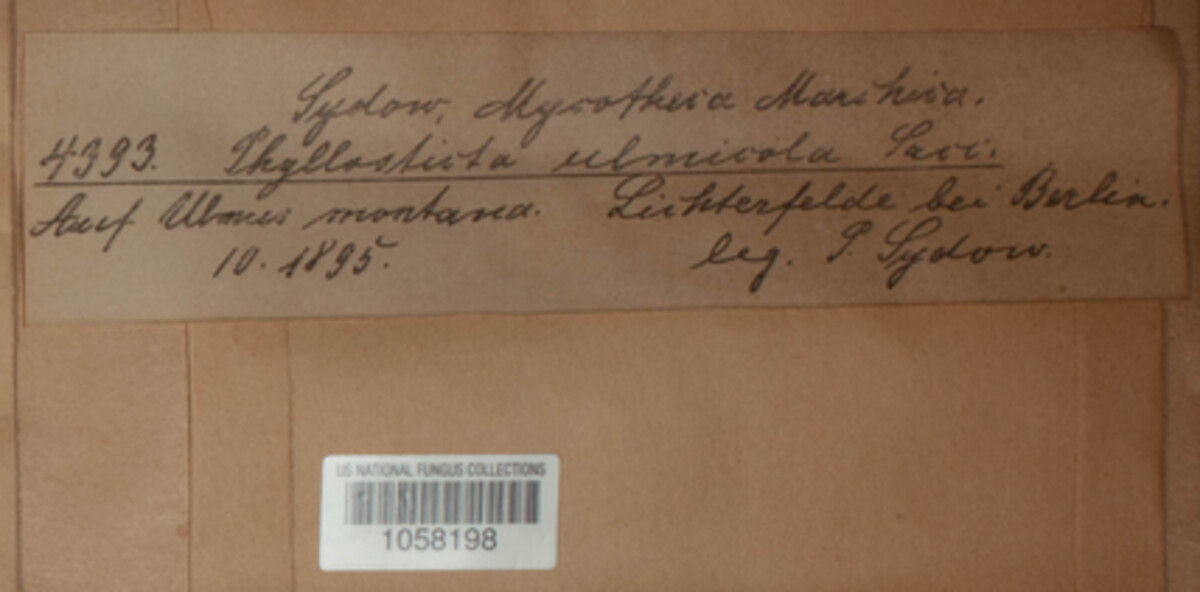 Sydow, Mycotheca Marchica.
4393. Phyllosticta ulmicola Sacc.
Auf Ulmus montana. Lichterfelde bei Berlin.
10. 1895. leg. P. Sydow.
US NATIONAL FUNGUS COLLECTIONS
1058198